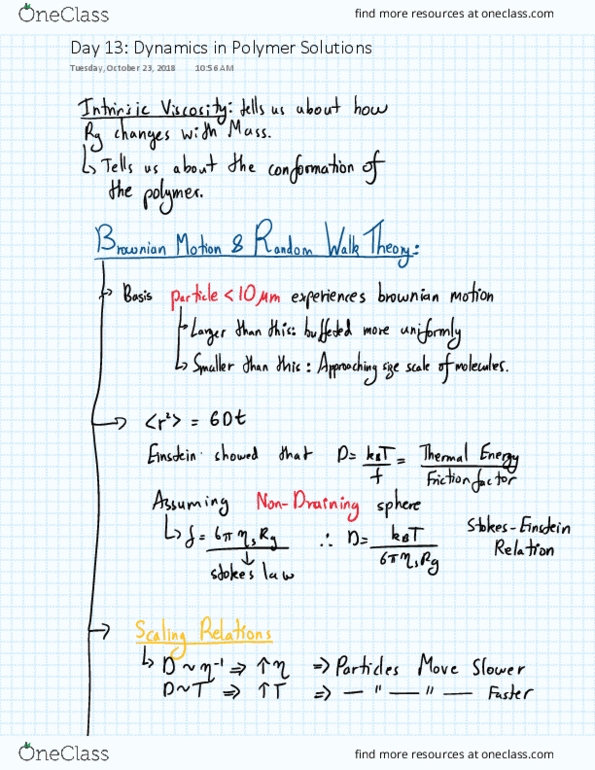 OneClass
find more resources at oneclass.com
Day 13: Dynamics in Polymer Solutions
Tuesday, October 23, 2018 10:56 AM
Intrinsic Viscosity: tells us about how
Rg changes with Mass.
↳ Tells us about the conformation of
the polymer.
Brownian Motion & Random Walk Theory:
→ Basis particle < 10 μm experiences brownian motion
↳ Larger than this: buffeted more uniformly
↳ Smaller than this: Approaching size scale of molecules.
→ <r²> = 6Dt
Einstein showed that D = kBT/f = Thermal Energy/Friction factor
Assuming Non-Draining sphere
↳ f = 6πηsRg ∴ D = kBT/6πηsRg Stokes-Einstein Relation
↓
stokes law
→ Scaling Relations
↳ D ~ η⁻¹ ⇒ ↑η ⇒ Particles Move Slower
D ~ T ⇒ ↑T ⇒ — " — " — Faster
OneClass
find more resources at oneclass.com